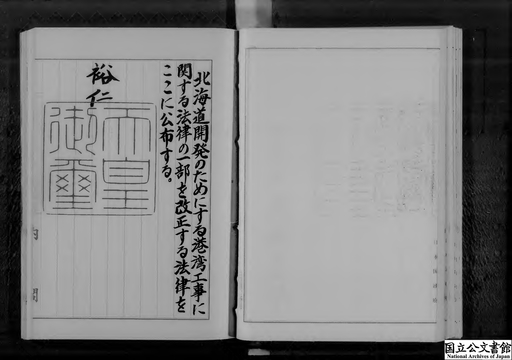 北海道開発のためにする港湾工事に
関する法律の一部を改正する法律を
ここに公布する。
裕仁
天皇
御璽
内閣
国立公文書館
National Archives of Japan